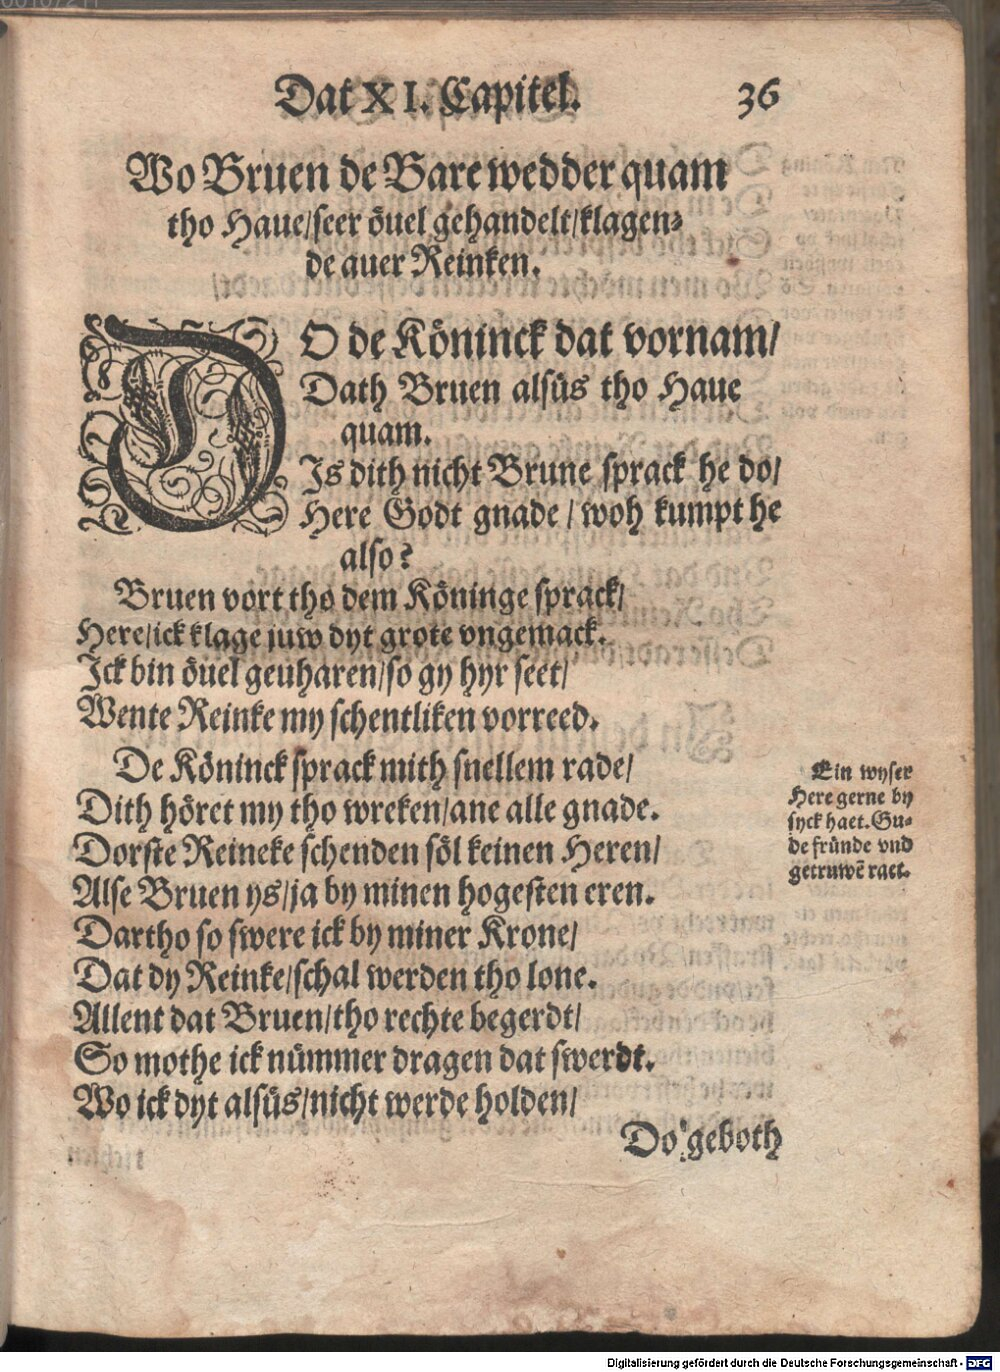 Dat XI. Capitel. 36
Wo Bruen de Bare wedder quam
tho Haue/seer öuel gehandelt/klagen⸗
de auer Reinken.
DO de Köninck dat vornam/
Dath Bruen alsüs tho Haue
quam.
Is dith nicht Brune sprack he do/
Here Godt gnade / woh kumpt he
also?
Bruen vort tho dem Köninge sprack/
Here/ick klage juw dyt grote vngemack.
Ick bin öuel geuharen/so gy hyr seet/
Wente Reinke my schentliken vorreed.
De Köninck sprack mith snellem rade/
Dith höret my tho wreken/ane alle gnade.
Dorste Reineke schenden söl keinen Heren/
Alse Bruen ys/ja by minen hogesten eren.
Dartho so swere ick by miner Krone/
Dat dy Reinke/schal werden tho lone.
Allent dat Bruen/tho rechte begerdt/
So mothe ick nümmer dragen dat swerdt.
Wo ick dyt alsüs/nicht werde holden/
Do geboth
Ein wyser
Here gerne by
syck haet. Gu⸗
de fründe vnd
getruwē raet.
Digitalisierung gefördert durch die Deutsche Forschungsgemeinschaft - DFG